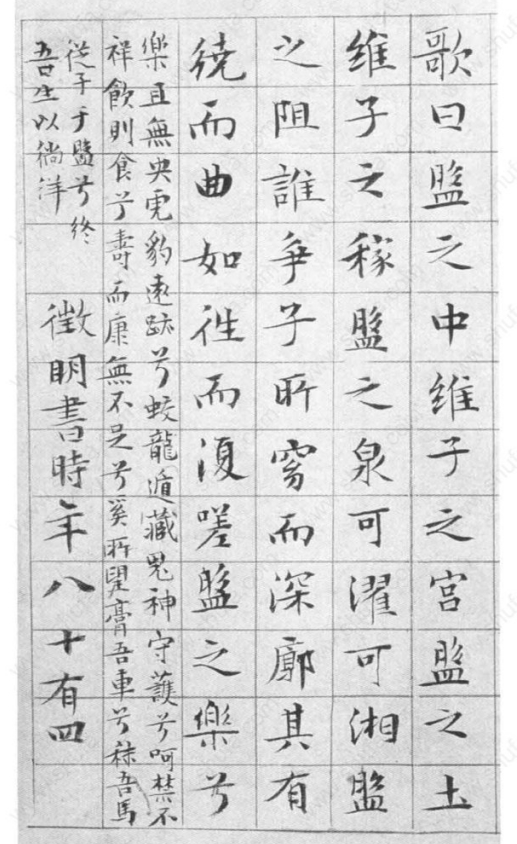 歌曰盤之中維子之宮盤之土
維子之稼盤之泉可濯可湘盤
之阻誰爭子所窈而深廓其有
繞而曲如往而復嗟盤之樂兮
樂且無央虎豹遠跡兮蛟龍遁藏鬼神守護兮呵禁不
祥飲則食兮壽而康無不足兮奚所望膏吾車兮秣吾馬
從子于盤兮終
吾生以徜徉
徵明書時年八十有四